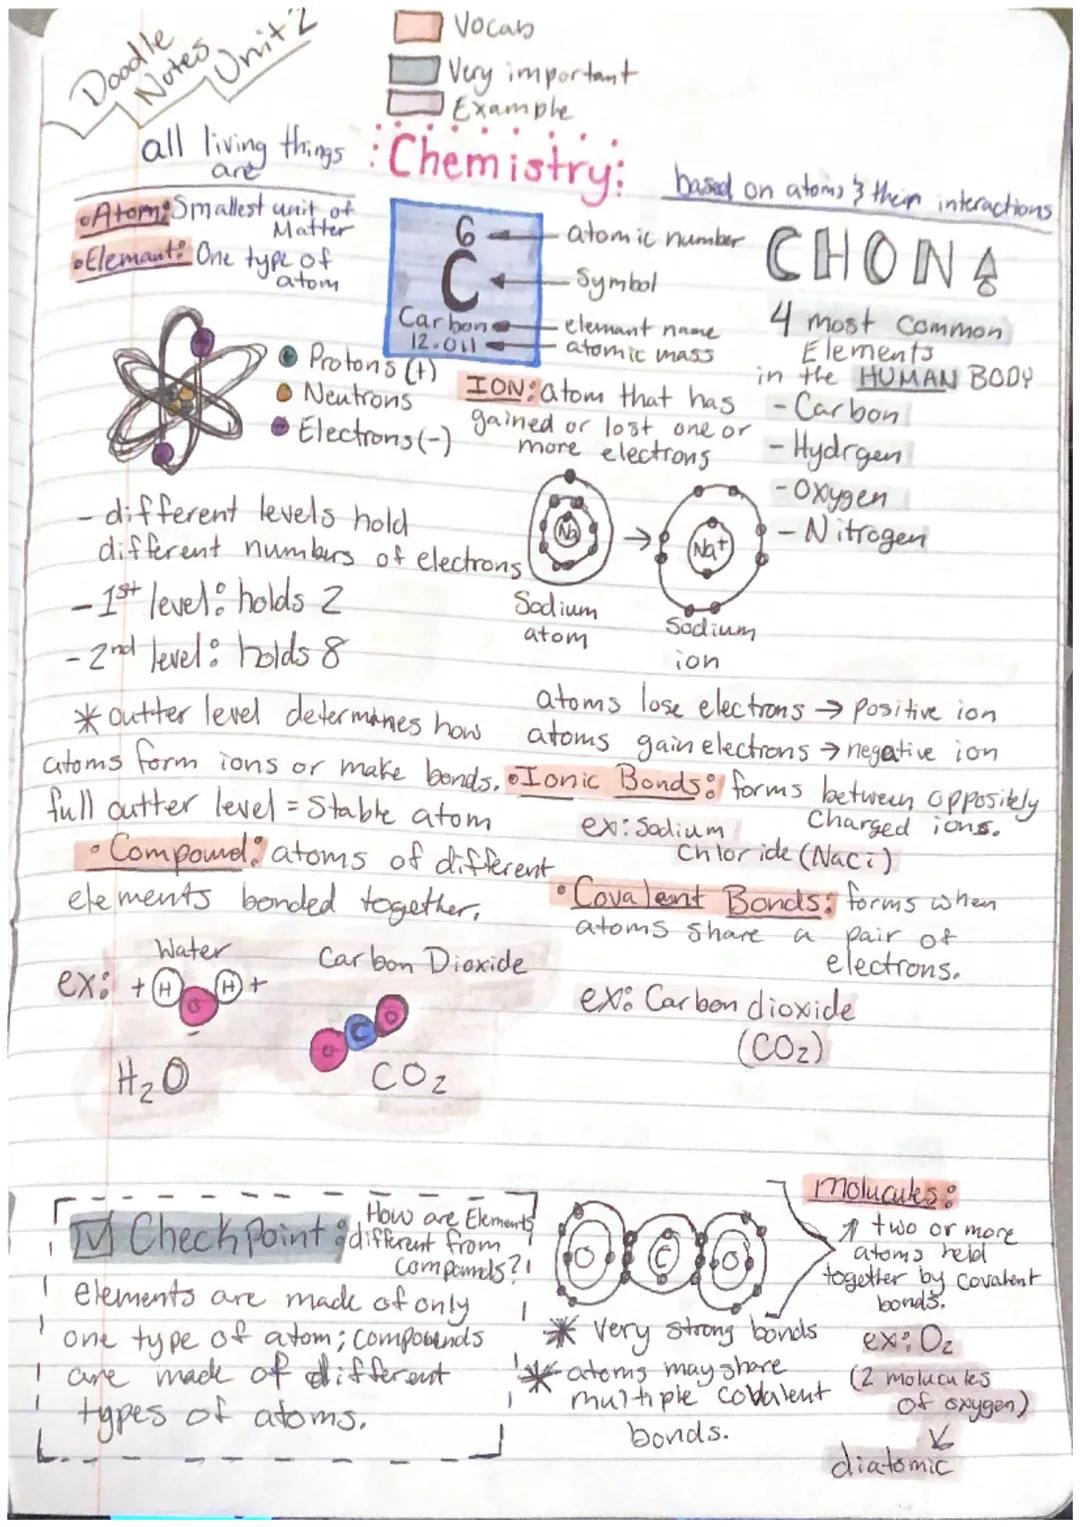 Doodle
Notes
Unit 2
Vocab
Very important
Example
all living things
are
Chemistry:
based on atoms & their interactions
•Atom: Smallest unit of
Matter
•Elemant: One type of
atom
6
C
Carbon
12.011
atomic number
Symbol
elemant name
atomic mass
CHON
4 most common
Elements
in the HUMAN BODY
- Carbon
- Hydrgen
- Oxygen
- Nitrogen
Protons (+)
Neutrons
Electrons (-)
ION: atom that has
gained or lost one or
more electrons
Na
Na+
Sodium
atom
Sodium
ion
- different levels hold
different numbers of electrons
- 1st level: holds 2
- 2nd level: holds 8
* outter level determines how
atoms form ions or make bonds.
full outter level = Stable atom
atoms lose electrons → positive ion
atoms gain electrons → negative ion
•Ionic Bonds: forms between oppositely
Charged ions.
ex: Sodium
Chloride (Naci)
• Compound: atoms of different
elements bonded together.
• Covalent Bonds: forms when
atoms share a pair of
electrons.
ex: Carbon dioxide
(CO2)
Water
Carbon Dioxide
ex: + H O H +
-
O C O
H2O
CO2
Checkpoint: How are Elements
different from
compounds?!
elements are made of only
one type of atom; compounds
are made of different
types of atoms.
O C O
* Very strong bonds
* atoms may share
multiple cobalent
bonds.
Molucules:
↑ two or more
atoms held
together by covalent
bonds.
ex: O2
(2 molucules
of oxygen)
↓
diatomic